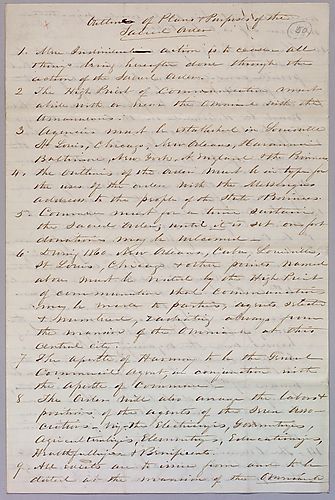 Outline of Plans & Purposes of the
Sacred Order
(50)
1. Mere Individual action is to cease all
things being hereafter done through the
action of the Sacred Order.
2 The High Priest of Communication must
abide with or near the Commune with the
Amanuensis.
3. Agencies must be established in Louisville
St Louis, Chicago, New Orleans, Havana
Baltimore, New York, N. England & the Provinces
4. The Outlines of the Order must be in type for
the uses of the order with the Messengers
address to the people of the State & Provinces.
5. Commerce must for a time sustain
the Sacred Order, until it is set on foot
donations may be welcomed
6 During 1860 New Orleans, Cuba, Louisville,
St Louis, Chicago & other points named
above must be visited by the High Priest
of communication that Communications
may be made to parties, agents selected
& Instructed, radiating always from
the mansion of the Commune at this
Central city.
7 The apostle of Harmony to be the General
Commercial Agent, in conjunction with
the apostle of Commerce
8 The Order will also arrange the labors &
positions of the agents of the seven Asso-
ciations, viz, the Electricizers, Governmentizers
Agriculturalizers, Elementizers, Educationizers,
Healthfulizers & Beneficents.
9. All edicts are to issue from and to be
dated at the mansion of the Commune